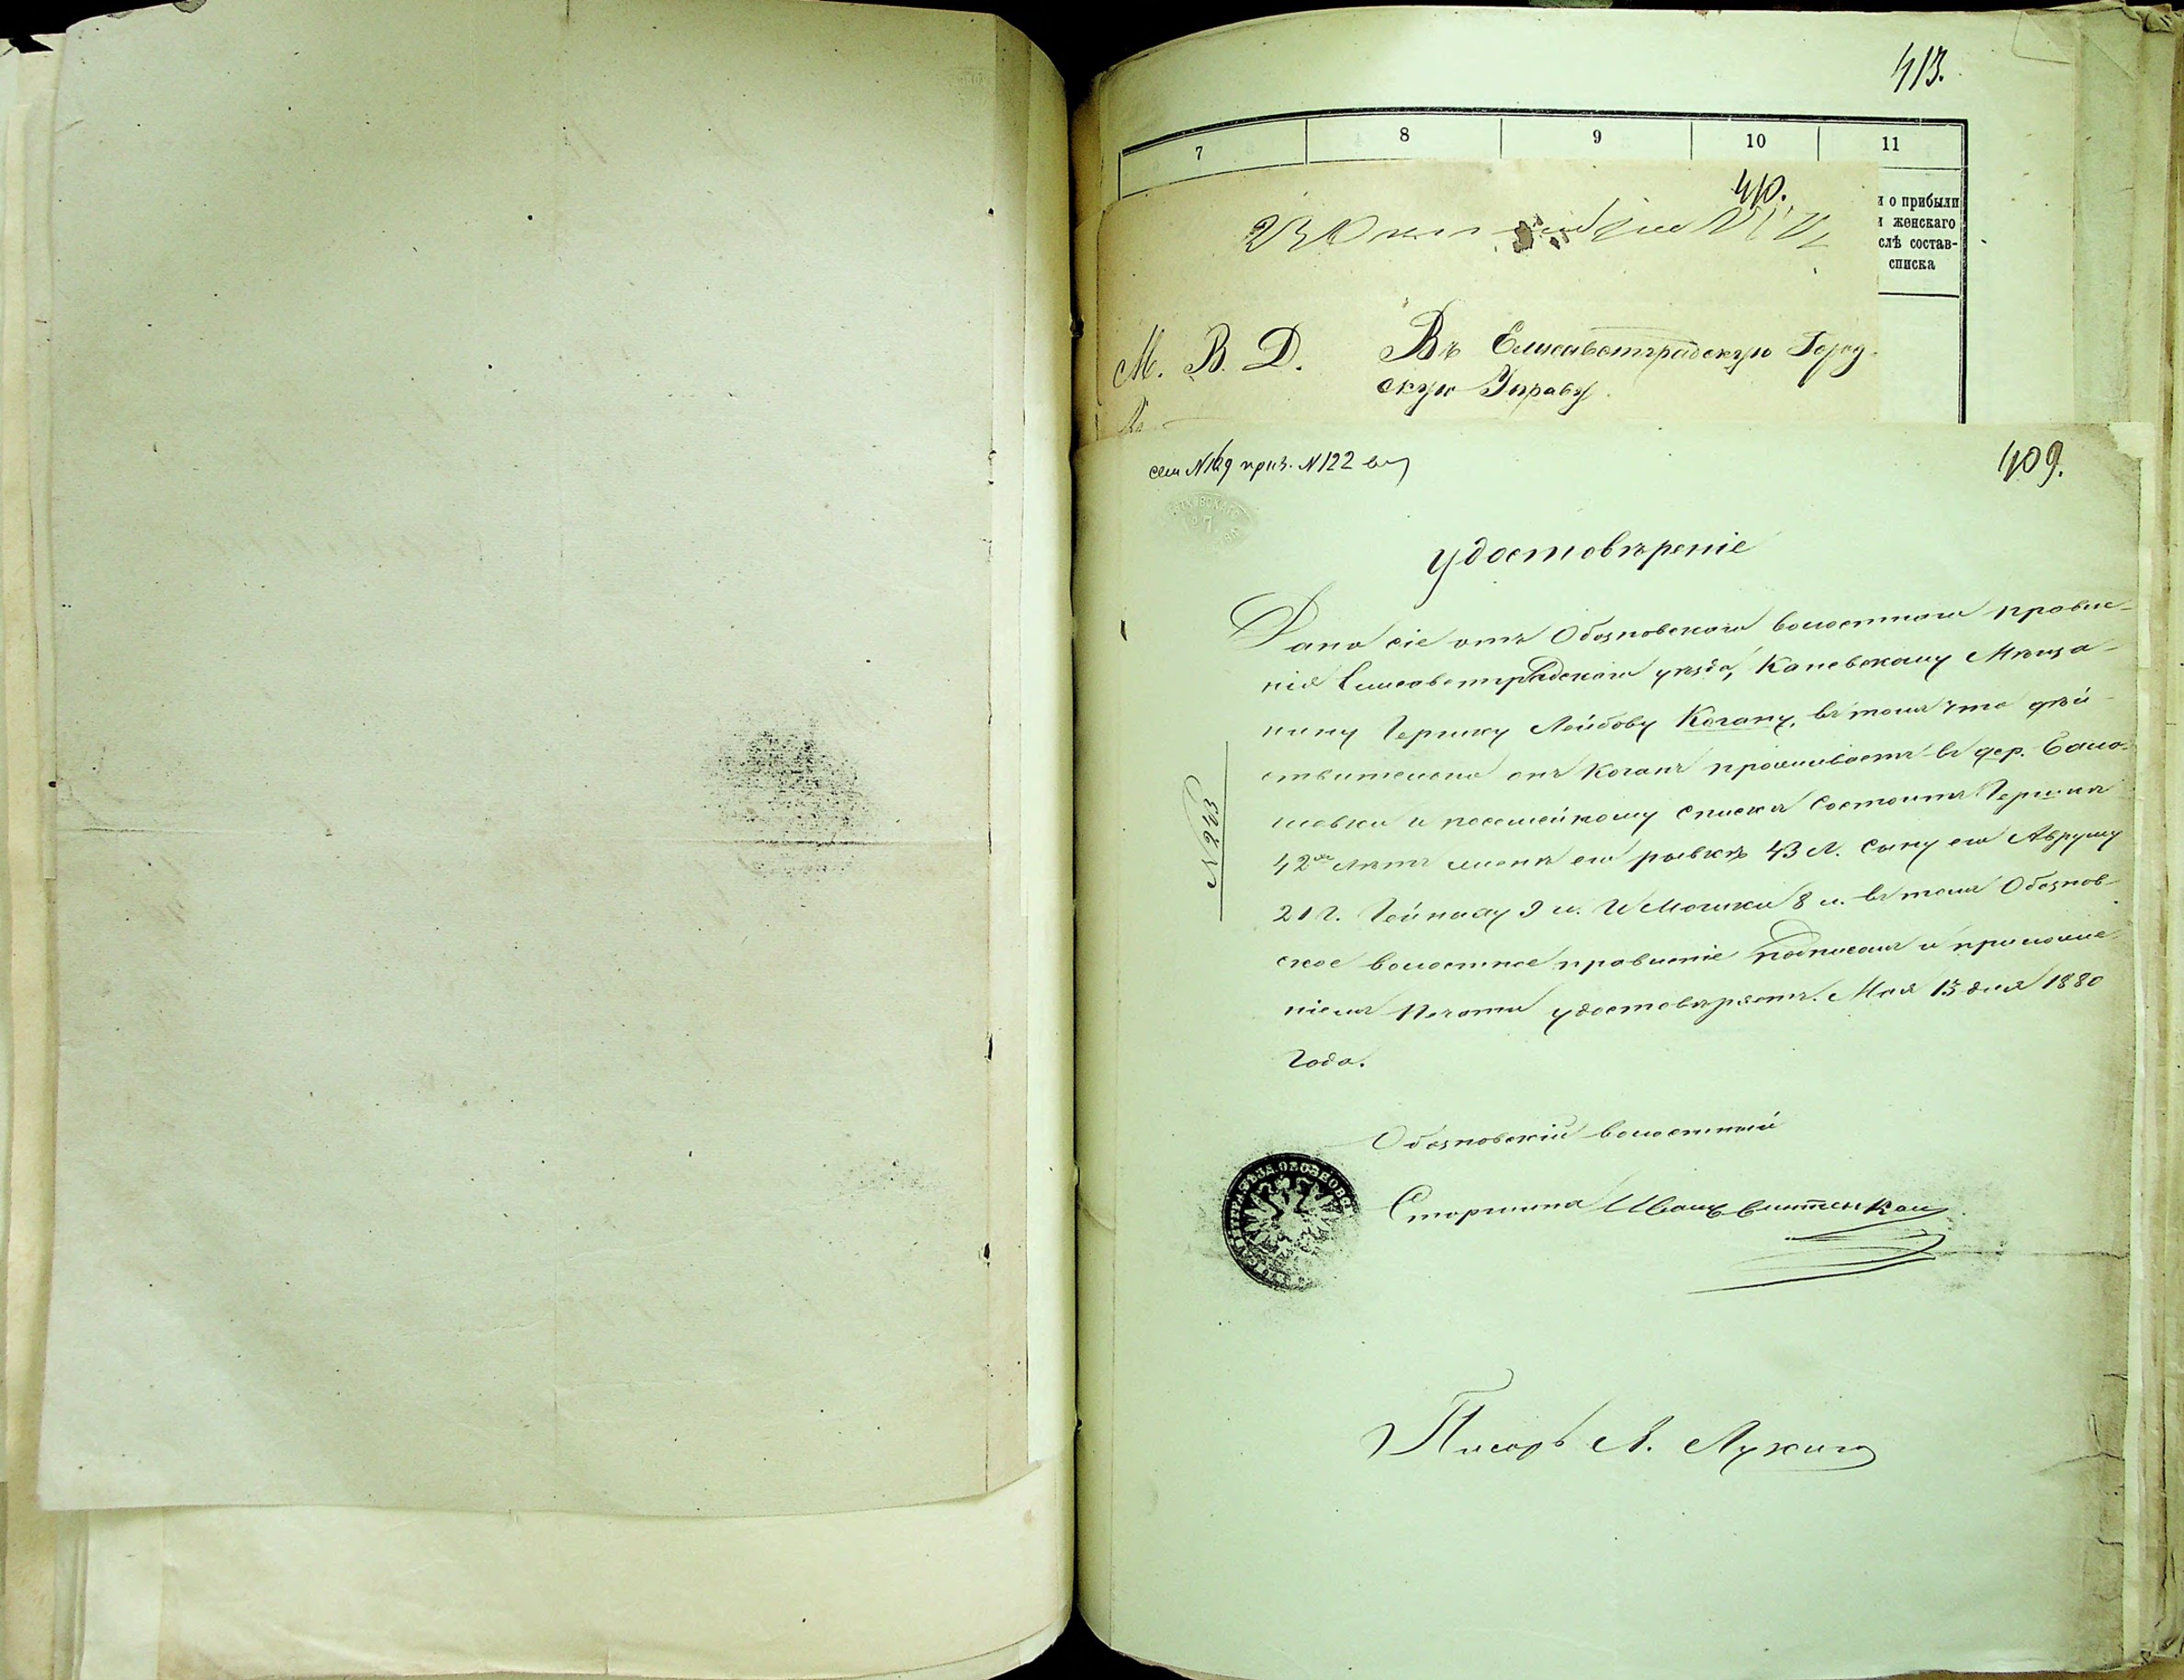 413.
7 8 9 10 11
и о прибыли
и женскаго
слѣ состав-
списка
410.
М. В. Д.
Въ Елисаветградскую Город-
скую Управу
409.
сем №169 приз. №122
Удостовѣреніе
Дано сіе отъ Обозновскаго волостнаго правле-
нія Елисаветградскаго уѣзда, Каневскому Мѣща-
нину Гершку Лейбову Когану, въ томъ что дѣй-
ствительно онъ Коганъ проживаетъ въ дер.
и посемейному списка состоитъ Гершка
42хъ лѣтъ жена его Ривкѣ 43 л. Сыну его Авруму
21 г. 9 л. и Мошки 8 л. въ томъ Обознов-
ское волостное правленіе подписомъ и приложе-
ніемъ Печати удостовѣряетъ. Мая 13 дня 1880
Года.
№ 243
Обозновскій волостной
Старшина Иванъ
Писарь А. Лукин